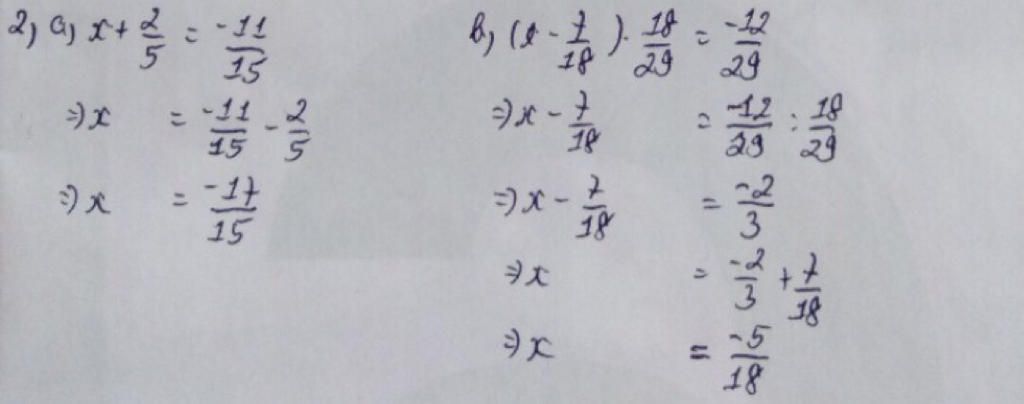 2) a) x + 2/5 = -11/15
=> x = -11/15 - 2/5
=> x = -17/15
b) (x - 7/18) . 18/29 = -12/29
=> x - 7/18 = -12/29 : 18/29
=> x - 7/18 = -2/3
=> x = -2/3 + 7/18
=> x = -5/18